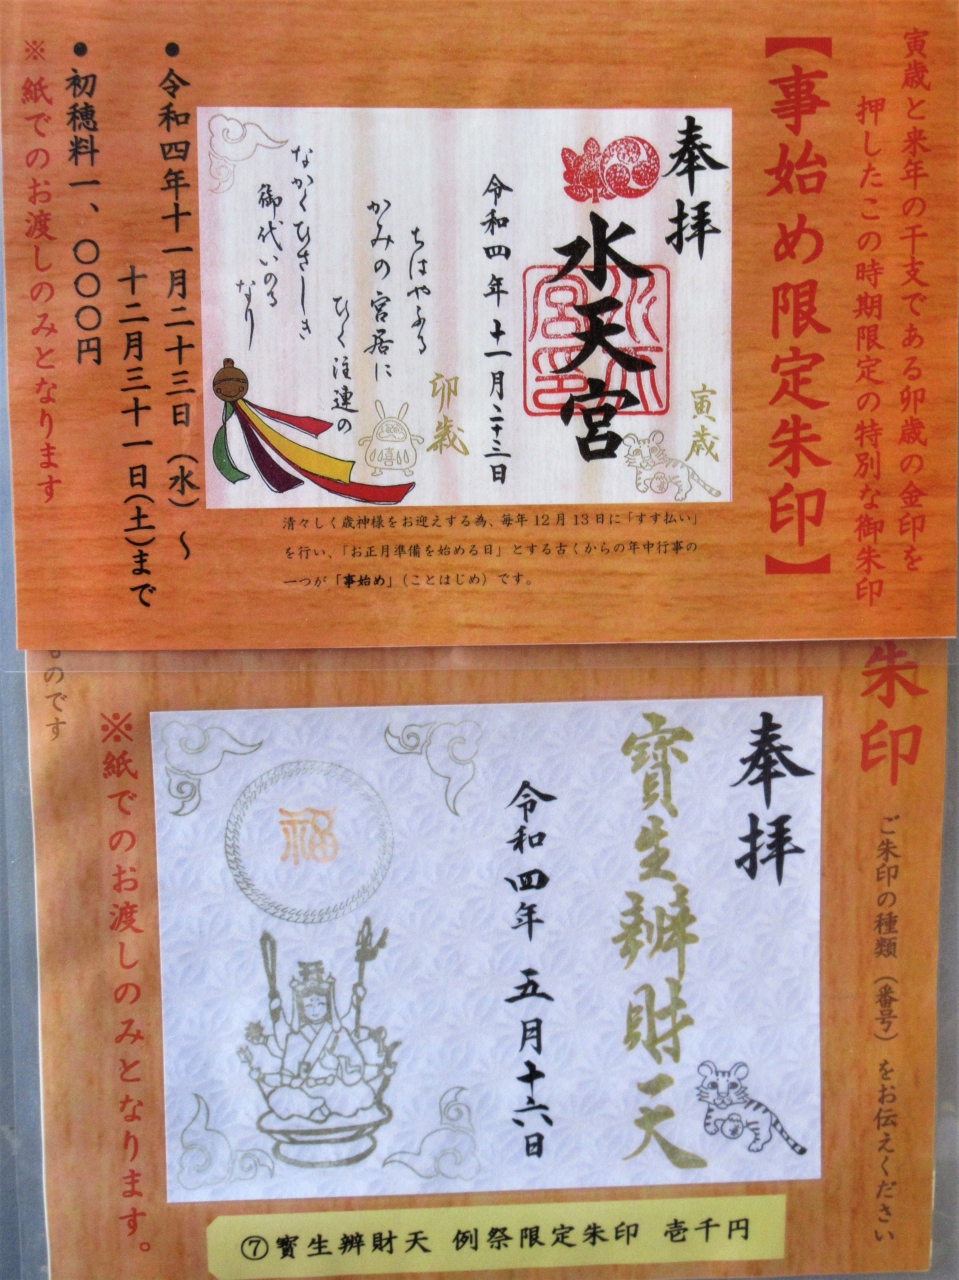 寅歳と来年の干支である卯歳の金印を
押したこの時期限定の特別な御朱印
【事始め限定朱印】
奉拝
寅歳
水天宮
令和四年十一月二十三日
卯歳
ちはやふる
かみの宮居に
ひく注連の
なかくひさしき
御代いのる
なり
清々しく歳神様をお迎えする為、毎年12月13日に「すす払い」
を行い、「お正月準備を始める日」とする古くからの年中行事の
一つが「事始め」（ことはじめ）です。
●令和四年十一月二十三日（水）～
十二月三十一日（土）まで
●初穂料一、〇〇〇円
※紙でのお渡しのみとなります
朱印
ご朱印の種類（番号）をお伝えください
奉拝
寶生辨財天
令和四年 五月十六日
福
※紙でのお渡しのみとなります。
ものです
⑦寶生辨財天 例祭限定朱印 壱千円